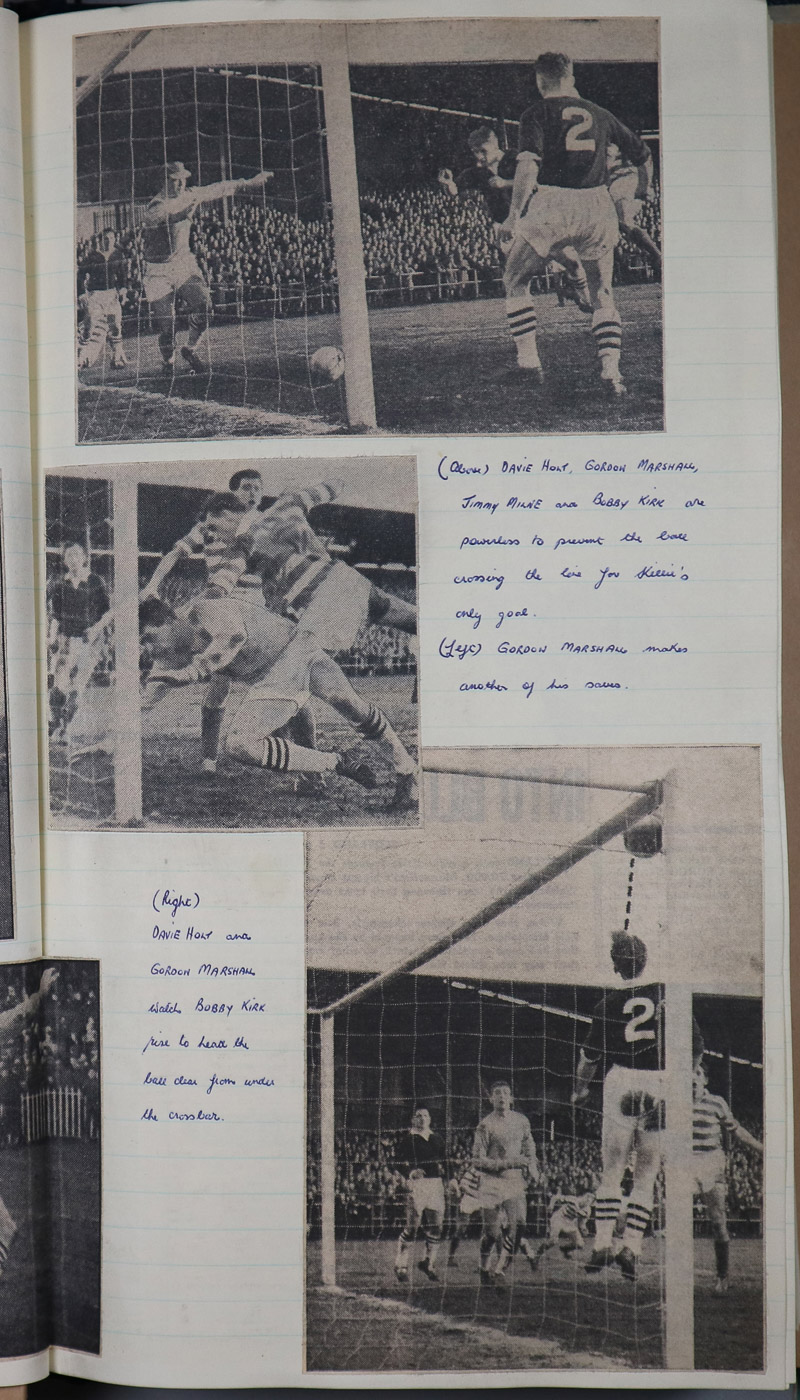 2
(Above) DAVIE HOLT, GORDON MARSHALL,
JIMMY MILNE and BOBBY KIRK are
powerless to prevent the ball
crossing the line for Killie's
only goal.
(Left) GORDON MARSHALL makes
another of his saves.
(Right)
DAVIE HOLT and
GORDON MARSHALL
watch BOBBY KIRK
rise to head the
ball clear from under
the crossbar.
2